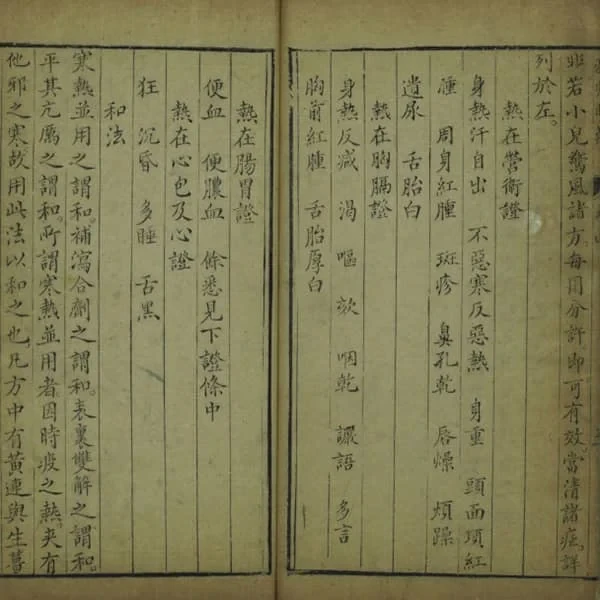 非若小兒驚風諸方每用分許即可有效當清諸症詳
列於左。
熱在營衛證
身熱汗自出 不惡寒反惡熱 身重 頭面項紅
腫 周身紅腫 斑疹 鼻孔乾 唇燥 煩躁
遺尿 舌胎白
熱在胸膈證
身熱反減 渴 嘔 欬 咽乾 讝語 多言
胸前紅腫 舌胎厚白
熱在腸胃證
便血 便膿血 餘悉見下證條中
熱在心包及心證
狂 沉昏 多睡 舌黑
和法
寒熱並用之謂和。補瀉合劑之謂和。表裏雙解之謂和。
平其亢厲之謂和。所謂寒熱並用者。因時疫之熱。夾有
他邪之寒。故用此法以和之也。凡方中有黃連與生薑